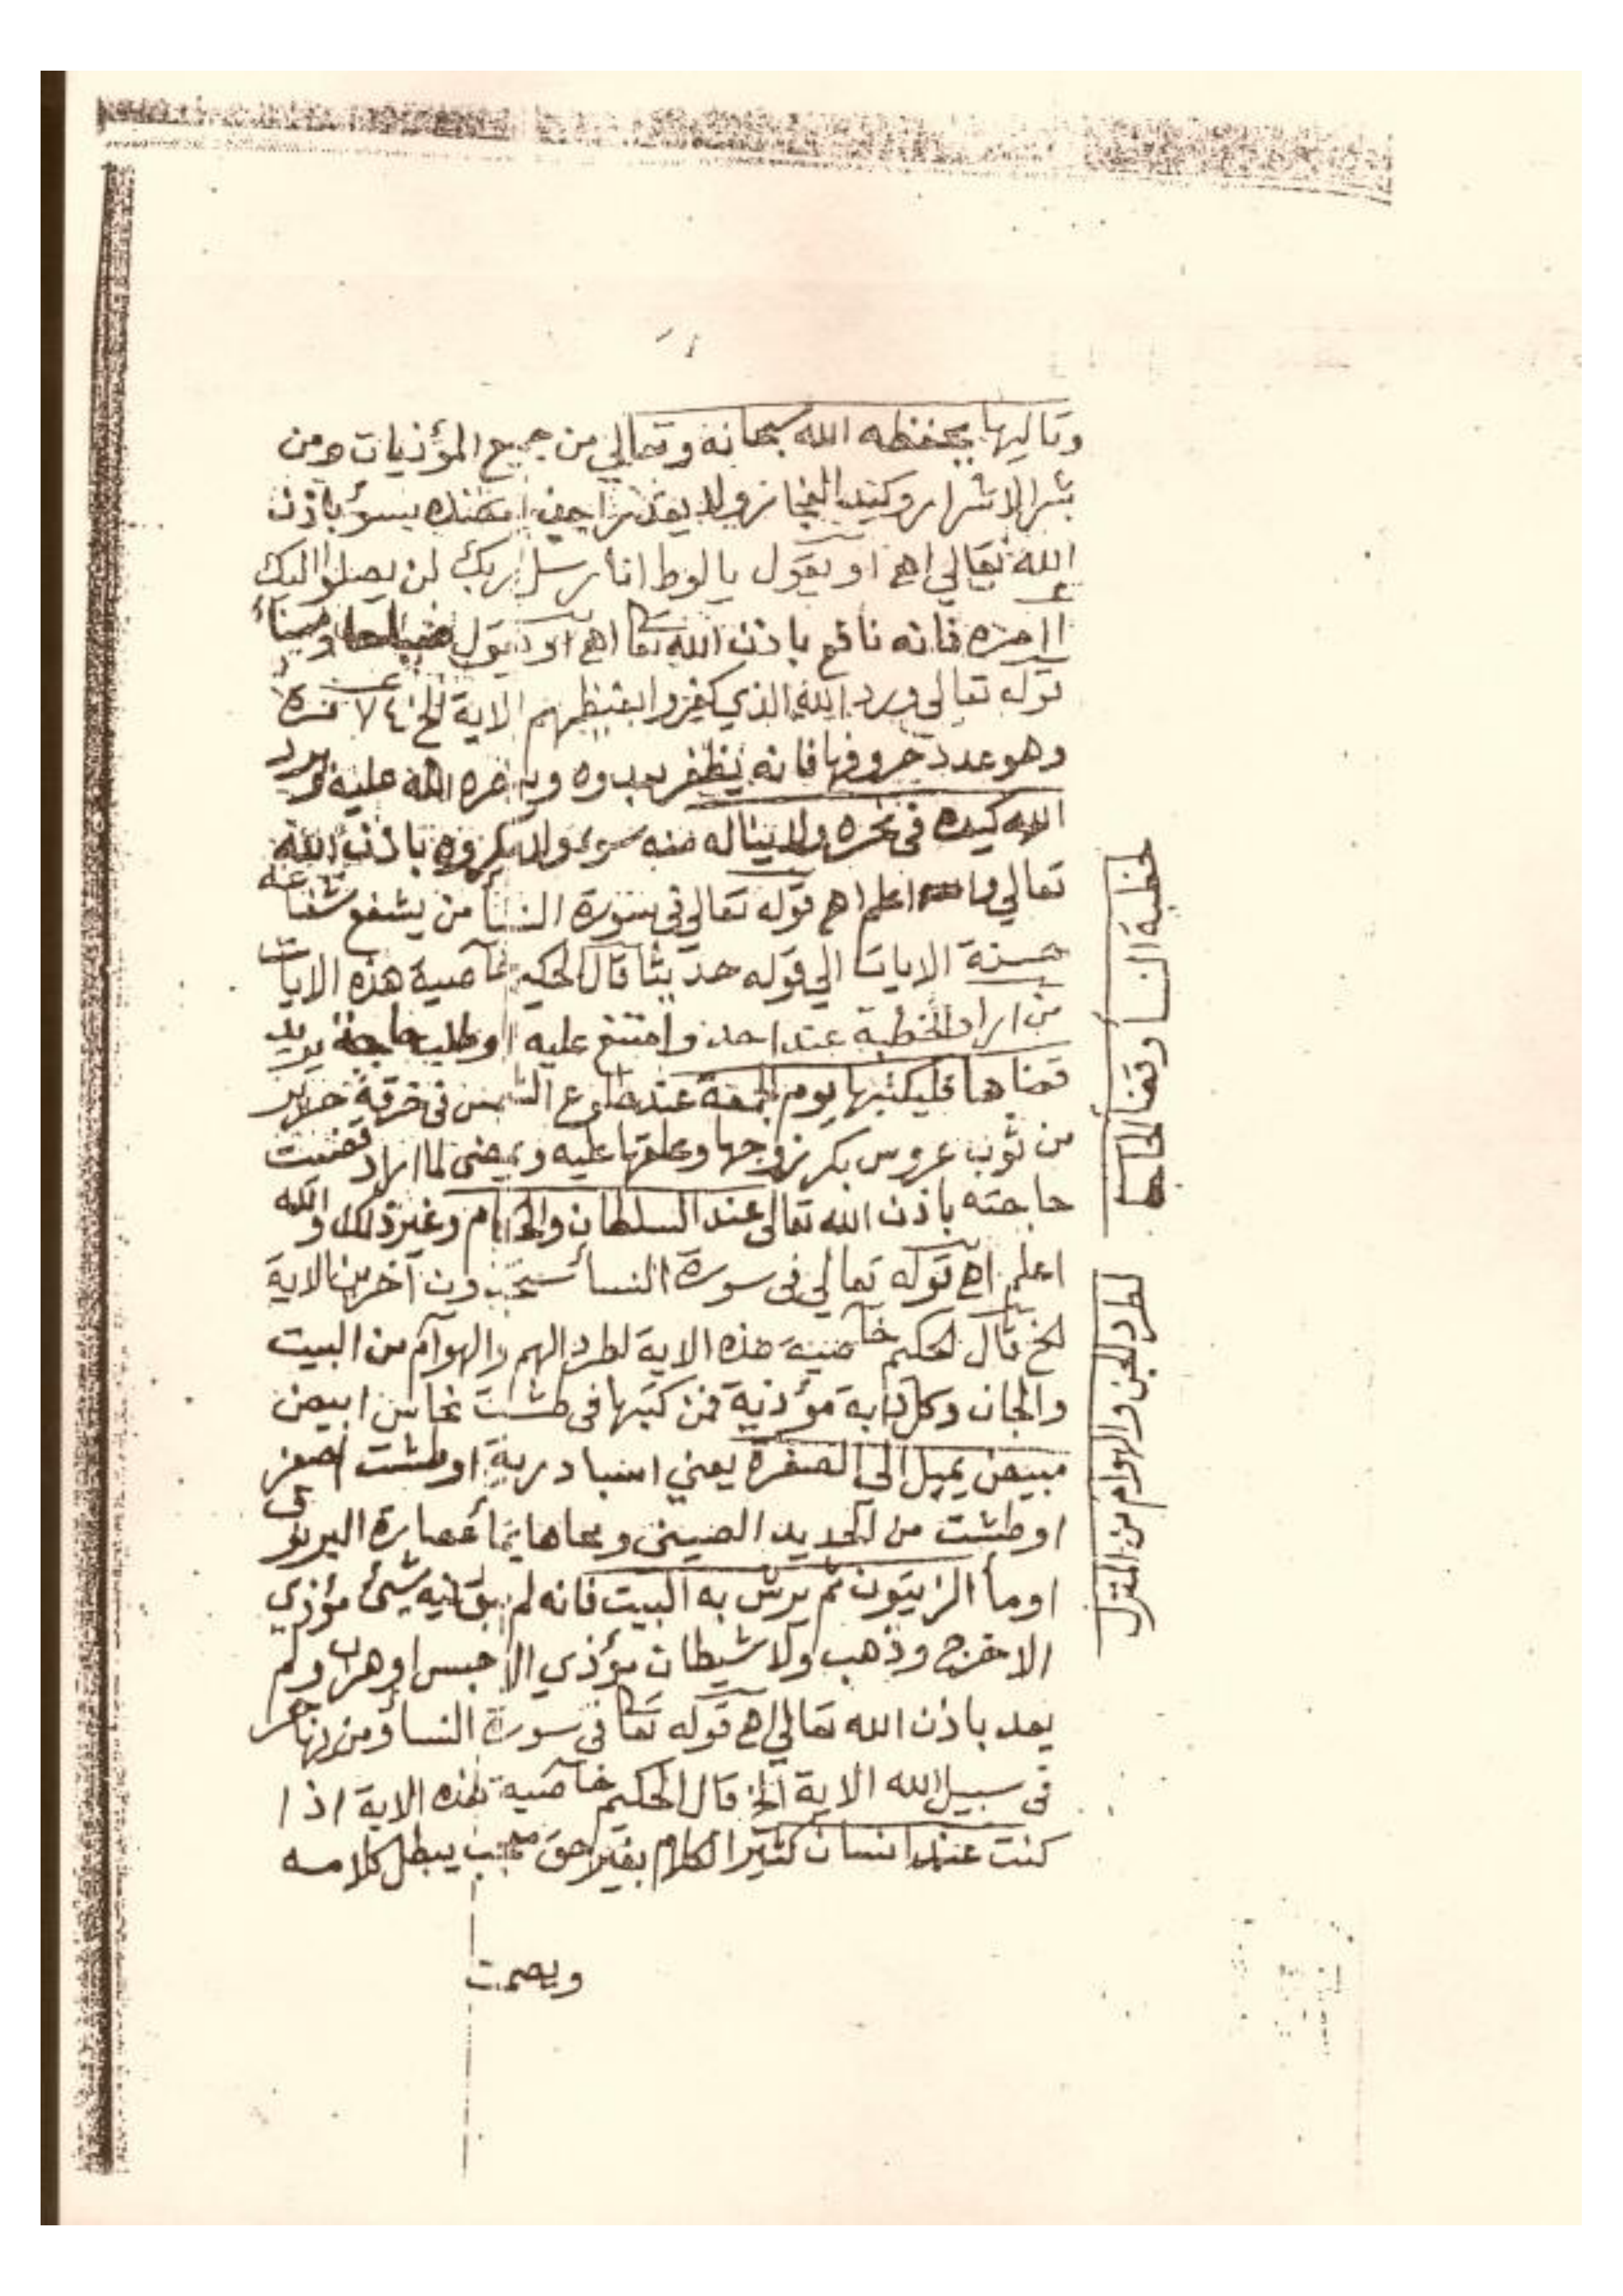 وتاليها يحفظه الله سبحانه وتعالي من جميع المؤذيات ومن
شر الاشرار وكيد الفجار ولا يقدر احد يسؤ باذن
الله تعالي اهـ او يقول يا لوط انا رسل ربك لن يصلوا اليك
مره فانه نافع باذن الله تعا اهـ او يقول صباحا ومسأ
قوله تعالي ورد الله الذي كفروا بغيظهم الاية الخ ٧٤ مرة
وهو عدد حروفها فانه يظفر بعدوه وينصره الله عليه ويرد
الله كيده في نحره ولا يناله منه سوء ولا مكروه باذن الله
تعالي والله اعلم اهـ قوله تعالي في سورة النسأ من يشفع شفاعة
حسنة الايات الي قوله حديثا قال الحكيم خآصية هذه الايات
من اراد الخطبة عند احد وامتنع عليه او طلب حاجة يريد
قضاها فليكتبها يوم الجمعة عند طلوع الشمس في خرقة حرير
من ثوب عروس بكر زوجها وعلقها عليه ويمضي لما اراد قضيت
حاجته باذن الله تعالي عند السلطان والحكام وغير ذلك والله
اعلم اهـ قوله تعالي في سورة النسأ ستجدون آخرين الاية
الخ قال الحكيم خآصية هذه الاية لطرد الهم والهوآم من البيت
والجان وكل دابة مؤذية فمن كتبها في طشت نحاس ابيض
مبيض يميل الي الصفرة يعني اسبادرية او طشت اصفر
او طشت من الحديد الصيني ومحاها بمأ عصارة
او مأ الزيتون ثم يرش به البيت فانه لم يبق فيه شئ مؤذي
الا خرج وذهب ولا شيطان مؤذي الا حبس او هرب ولم
يعد باذن الله تعالي اهـ قوله تعا في سورة النسأ ومن يهاجر
في سبيل الله الاية الخ قال الحكيم خآصية هذه الاية اذا
كنت عند انسان كثير الكلام بغير حق يبطل كلامه
ويصمت
خطبة النسأ وقضأ الحاجة
لطرد الجن والهوام من المنزل